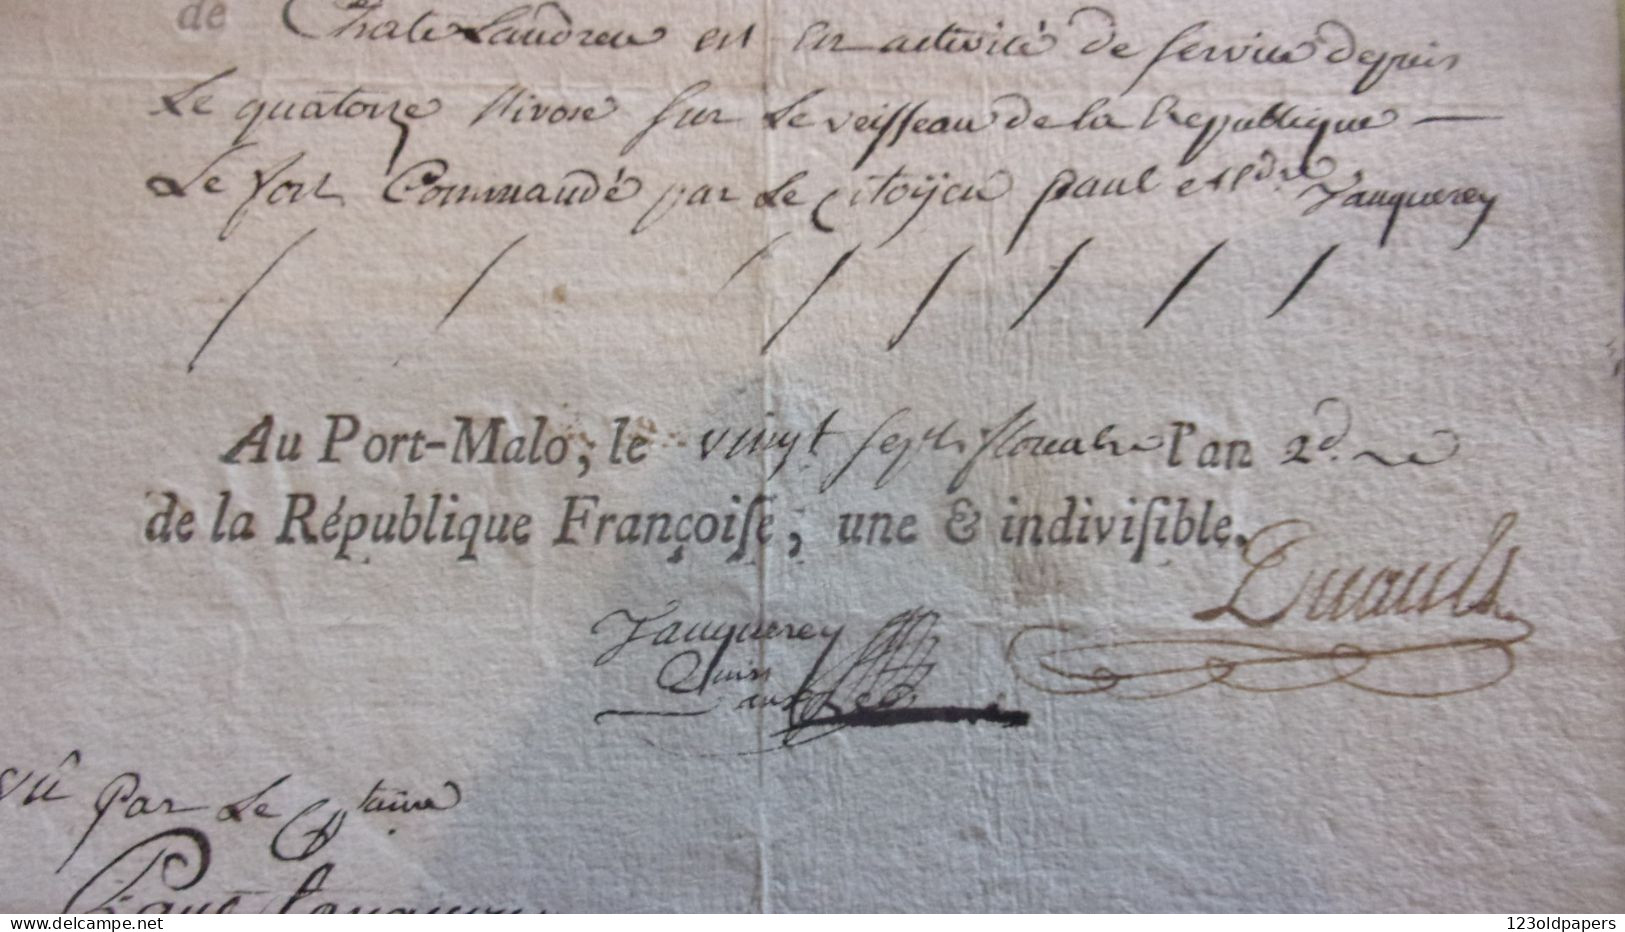 de ChateLaudreu est en activité de service depuis
Le quatorze Nivose sur Le veisseau de la Republique —
Le fort Commandé par Le citoÿen paul alldre Vauquerey
Au Port-Malo, le vingt sept floualre l'an 2d. re
de la République Françoiſe, une & indiviſible.
Duault
Vauquerey
vû par Le Cptaine
Paul Vauquerey
123oldpapers